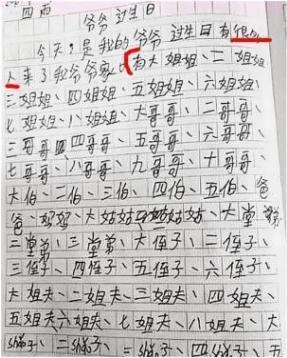 四西
爷爷过生日
今天,是我的爷爷过生日有很多
人来了我爷爷家,有大姐姐、二姐姐、
三姐姐、四姐姐、五姐姐、六姐姐、
七姐姐、八姐姐、大哥哥、二哥哥、
三哥哥、四哥哥、五哥哥、六哥哥、
七哥哥、八哥哥、九哥哥、十哥哥、
大伯、二伯、三伯、四伯、五伯、爸
爸、妈妈、大姑姑、姑姑、大堂弟
二堂弟、三堂弟、大侄子、二侄子、
三侄子、四侄子、五侄子、六侄子、
大姐夫、二姐夫、三姐夫、四姐夫、
五姐夫六姐夫、七姐夫、八姐夫、大